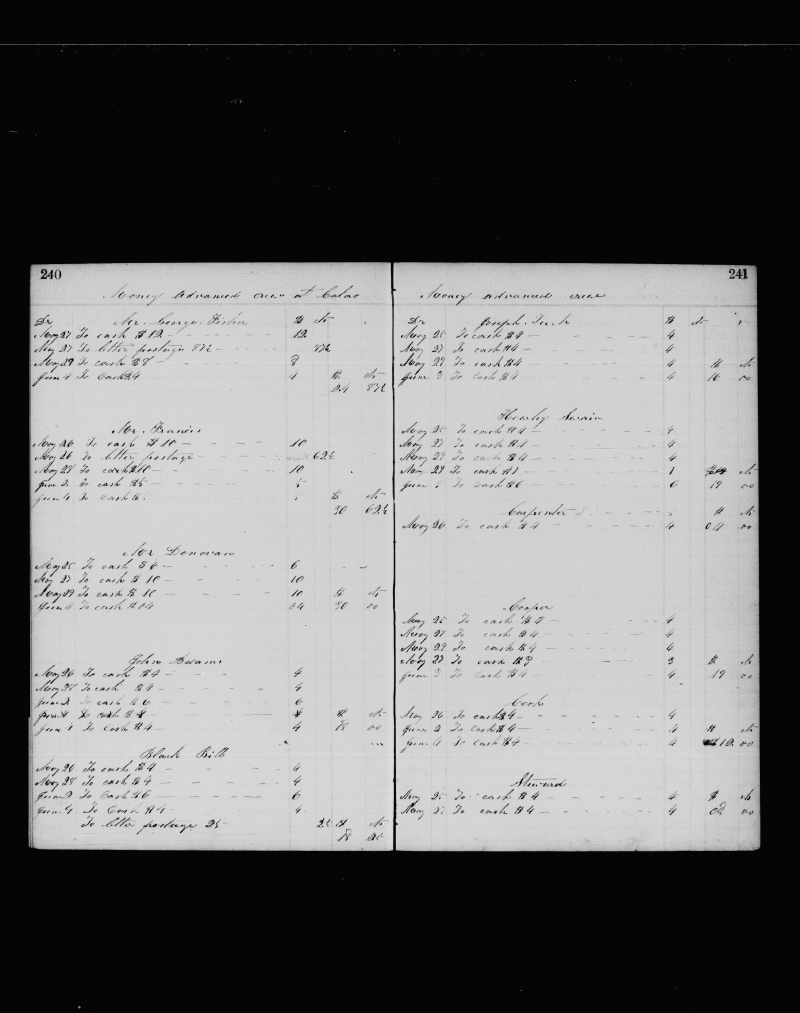 240
Money advanced crew at Calao
Dr Mr. George Fisher $ cts
May 27 To cash $12 — 12
May 27 To letter postage 87½ — 87½
May 29 To cash $8 — 8
June 4 To Cash $4 4 $ cts
24 87½
Mr. Francis
May 26 To cash $10 — 10
May 26 To letter postage — 62½
May 28 To cash $10 — 10
June 2 To cash $5 — 5
June 4 To cash $5 5 $ cts
30 62½
Mr Donovan
May 25 To cash $6 — 6
May 27 To cash $10 — 10
May 29 To cash $10 — 10 $ cts
June 4 To cash $04 04 30 00
John Adams
May 26 To cash $4 — 4
May 28 To cash $4 — 4
June 2 To cash $6 — 6
June 4 To cash $4 4 $ cts
June 4 To Cash $4 — 4 18 00
Black Bill
May 26 To cash $4 — 4
May 28 To cash $4 — 4
June 2 To Cash $6 — 6
June 4 To Cash $4 — 4
To letter postage 25 25 $ cts
18 25
241
Money advanced crew
Dr Joseph $ cts
May 25 To cash $4 — 4
May 27 To cash $4 — 4
May 29 To cash $4 — 4 $ cts
June 3 To Cash $4 — 4 16 00
May 25 To cash $4 — 4
May 27 To cash $4 — 4
May 29 To cash $4 — 4
May 29 To cash $1 — 1 cts
June To cash $6 — 6 19 00
Carpenter $ cts
May 26 To cash $4 — 4 04 00
Cooper
May 25 To cash $4 — 4
May 27 To cash $4 — 4
May 29 To cash $4 — 4
May 29 To cash $3 — 3 $ cts
June 3 To Cash $4 — 4 19 00
Cook
May 26 To cash $4 — 4
June 2 To cash $4 — 4 $ cts
June 4 To Cash $4 — 4 12 00
Steward
May 25 To cash $4 — 4 $ cts
May 27 To cash $4 — 4 08 00